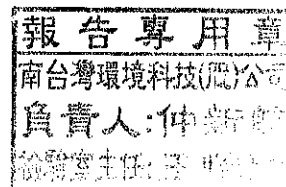 報告專用章
南台灣環境科技(股)公司
負責人:仲新
檢驗室主任: